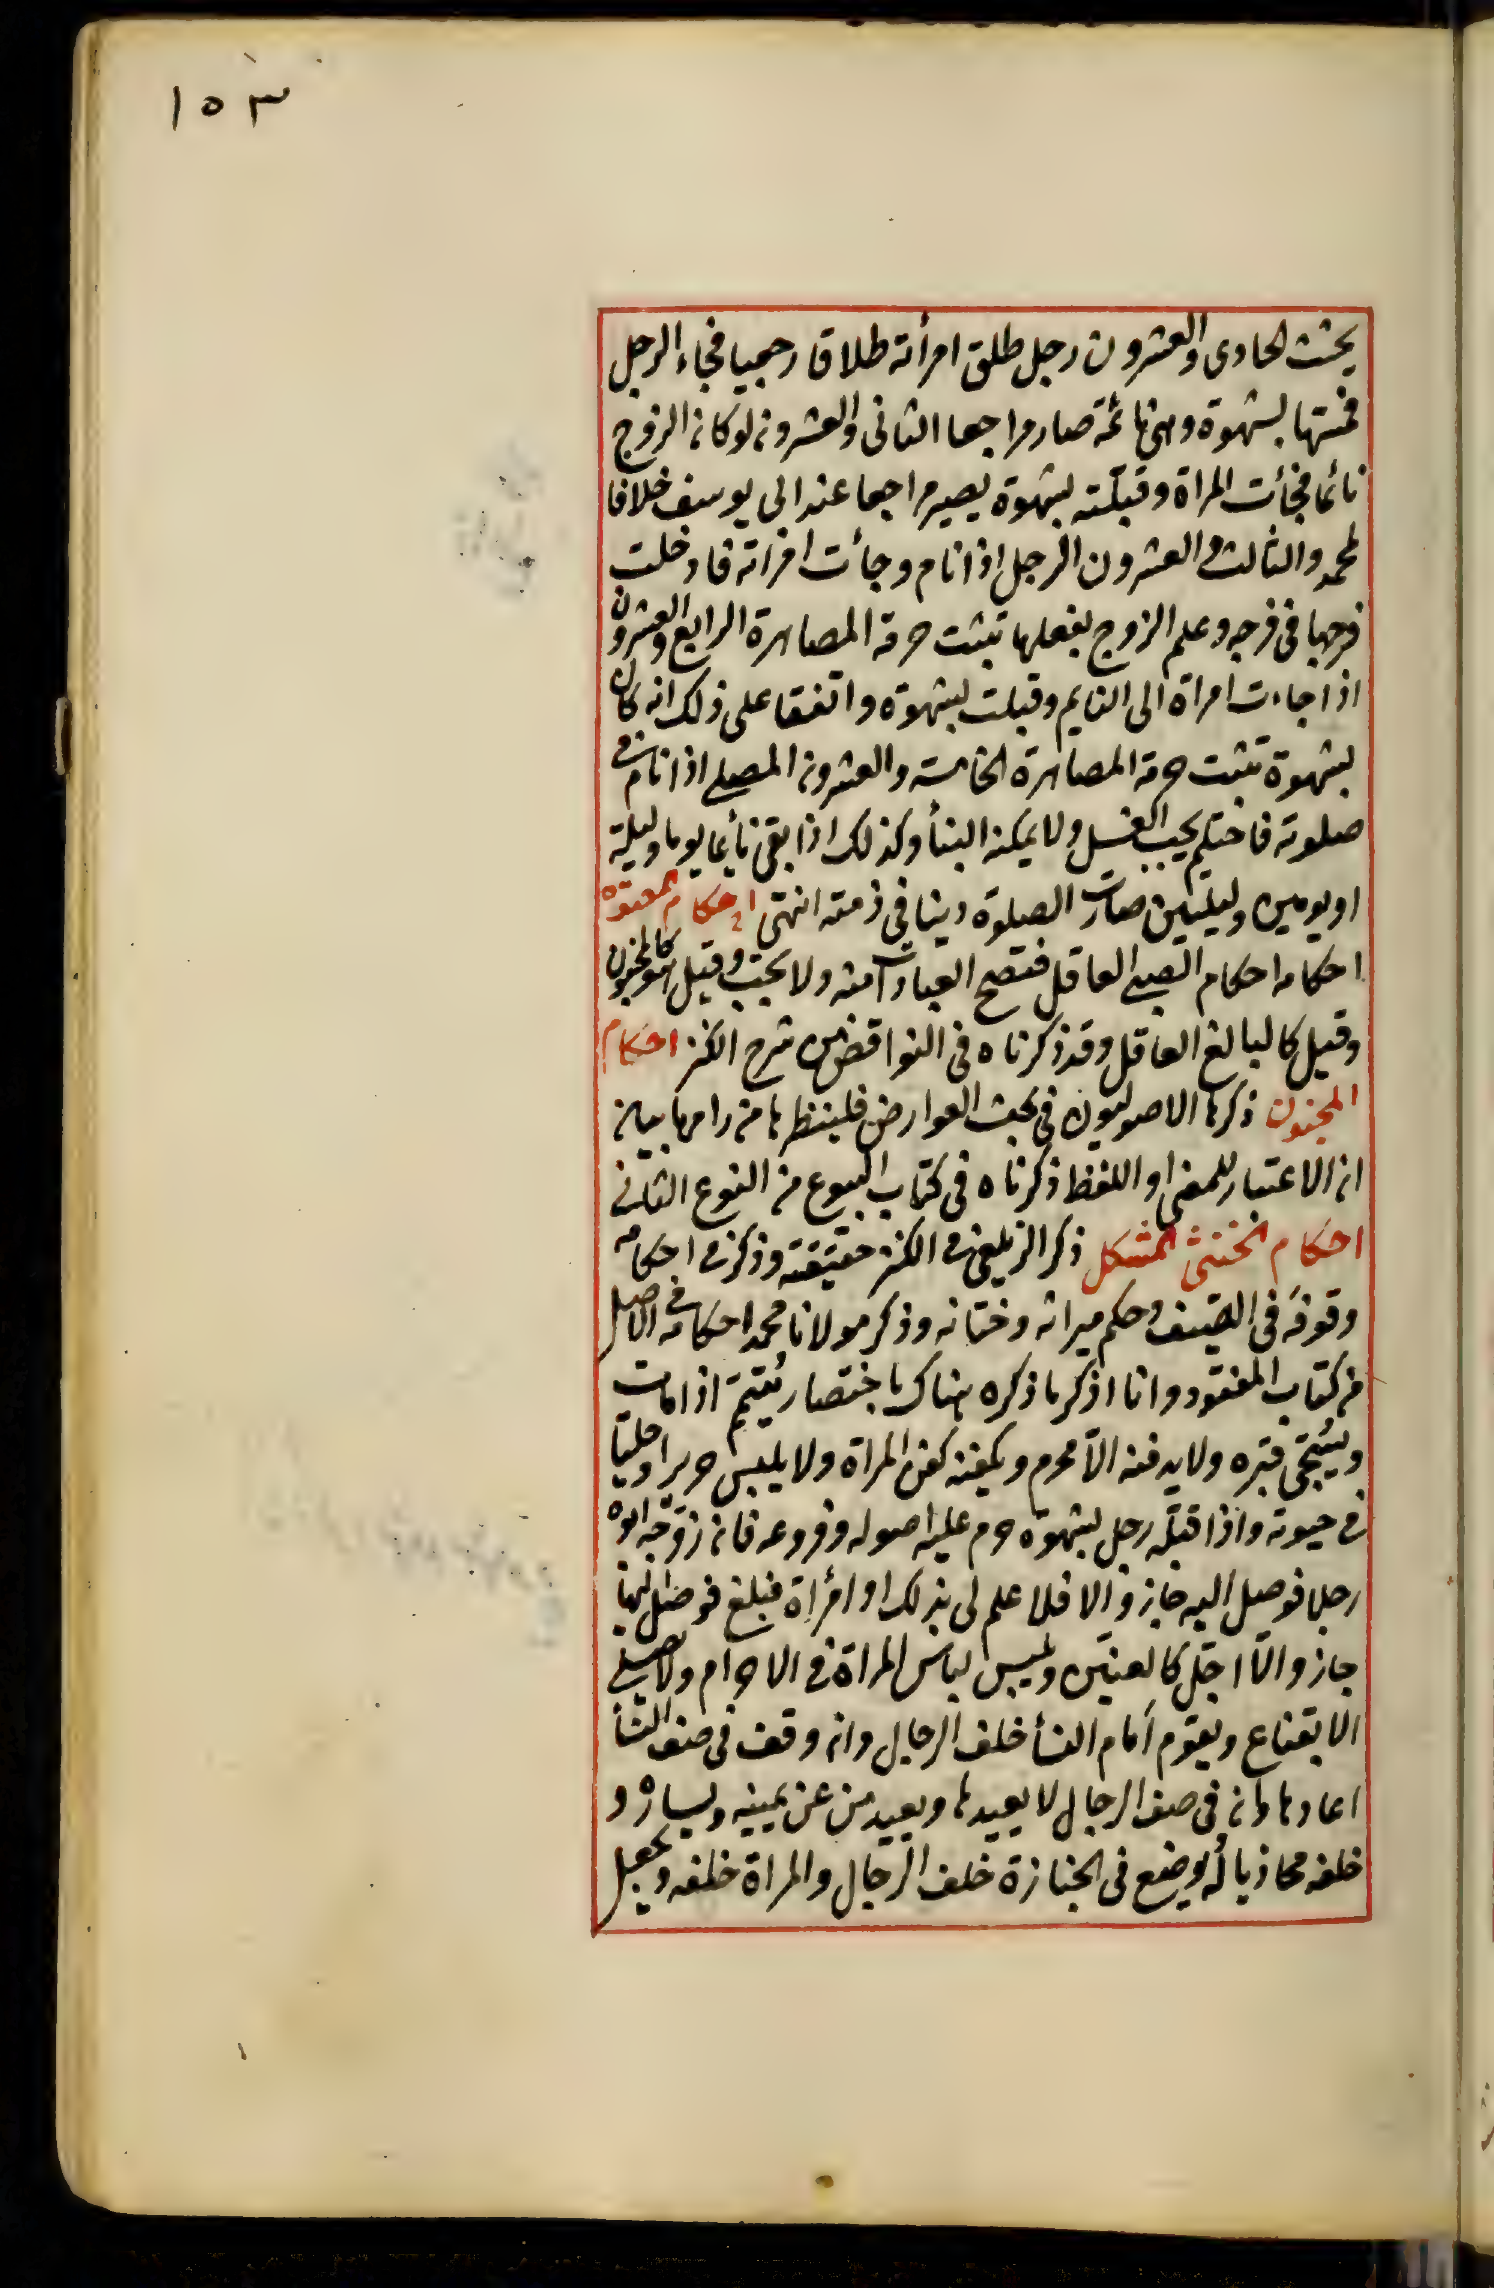 ١٥٣
يحنث الحادى والعشرون رجل طلق امرأته طلاقا رجعيا فجاء الرجل
فمستها بشهوة وهى نائمة صار مراجعا الثانى والعشرون لو كان الزوج
نائما فجأت المراة وقبلته بشهوة يصير مراجعا عند ابى يوسف خلافا
لمحمد والثالث والعشرون الرجل اذا نام وجأت امراته فادخلت
فرجها فى فرجه وعلم الزوج بفعلها تثبت حرمة المصاهرة الرابع والعشرون
اذا جاءت امراة الى النايم وقبلت بشهوة واتفقا على ذلك انه كان
بشهوة تثبت حرمة المصاهرة الخامسة والعشرون المصلى اذا نام فى
صلوته فاحتلم يجب الغسل ولا يمكنه البنأ وكذلك اذا بقى نائما يوما وليلة
او يومين وليلتين صارت الصلوة دينا فى ذمته انتهى احكام المعتوه
احكامه احكام الصبى العاقل فتصح العبادات منه ولا تجب وقيل هو كالمجنون
وقيل كالبالغ العاقل وقد ذكرناه فى النواقض من شرح الكنز احكام
المجنون ذكرها الاصوليون فى بحث العوارض فلينظرها من رامها بيان
ان الاعتبار للمعنى او اللفظ ذكرناه فى كتاب البيوع من النوع الثانى
احكام الخنثى المشكل ذكر الزيلعى فى الكنز حقيقته وذكر فى احكامه
وقوفه فى الصف وحكم ميراثه وختانه وذكر مولانا محمد احكامه فى الاصل
من كتاب المفقود وانا اذكر ما ذكره هناك باختصار يُتيمّم اذا مات
ويُسَجّى قبره ولا يدفنه الّا محرم ويكفنه كفن المراة ولا يلبس حريرا وحليّا
فى حيوته واذا قبّله رجل بشهوة حرم عليه اصوله وفروعه فان زوّجه ابوه
رجلا فوصل اليه جاز والا فلا علم لى بذلك او امرأة فبلغ فوصل اليها
جاز والّا اجّل كالعنّين ويلبس لباس المراة فى الاحرام ولا يصلى
الا بقناع ويقوم أمام النسأ خلف الرجال وان وقف فى صف النسأ
اعادها وان فى صف الرجال لا يعيدها ويعيد من عن يمينه ويساره و
خلفه محاذيا له ويوضع فى الجنازة خلف الرجال والمراة خلفه ويجعل